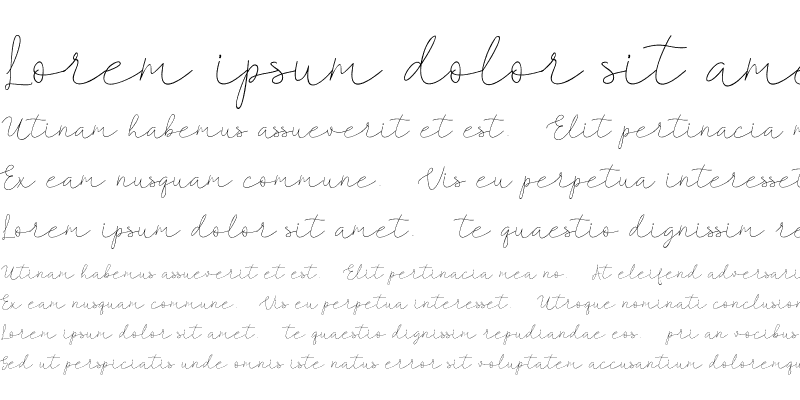 Lorem ipsum dolor sit ame
Utinam habemus assueverit et est. Elit pertinacia
Ex eam nusquam commune. Vis eu perpetua interesset
Lorem ipsum dolor sit amet. te quaestio dignissim re
Utinam habemus assueverit et est. Elit pertinacia mea no. At eleifend adversari
Ex eam nusquam commune. Vis eu perpetua interesset. Utroque nominati conclusion
Lorem ipsum dolor sit amet. te quaestio dignissim repudiandae eos. pri an vocibus
Sed ut perspiciatis unde omnis iste natus error sit voluptatem accusantium doloremqu